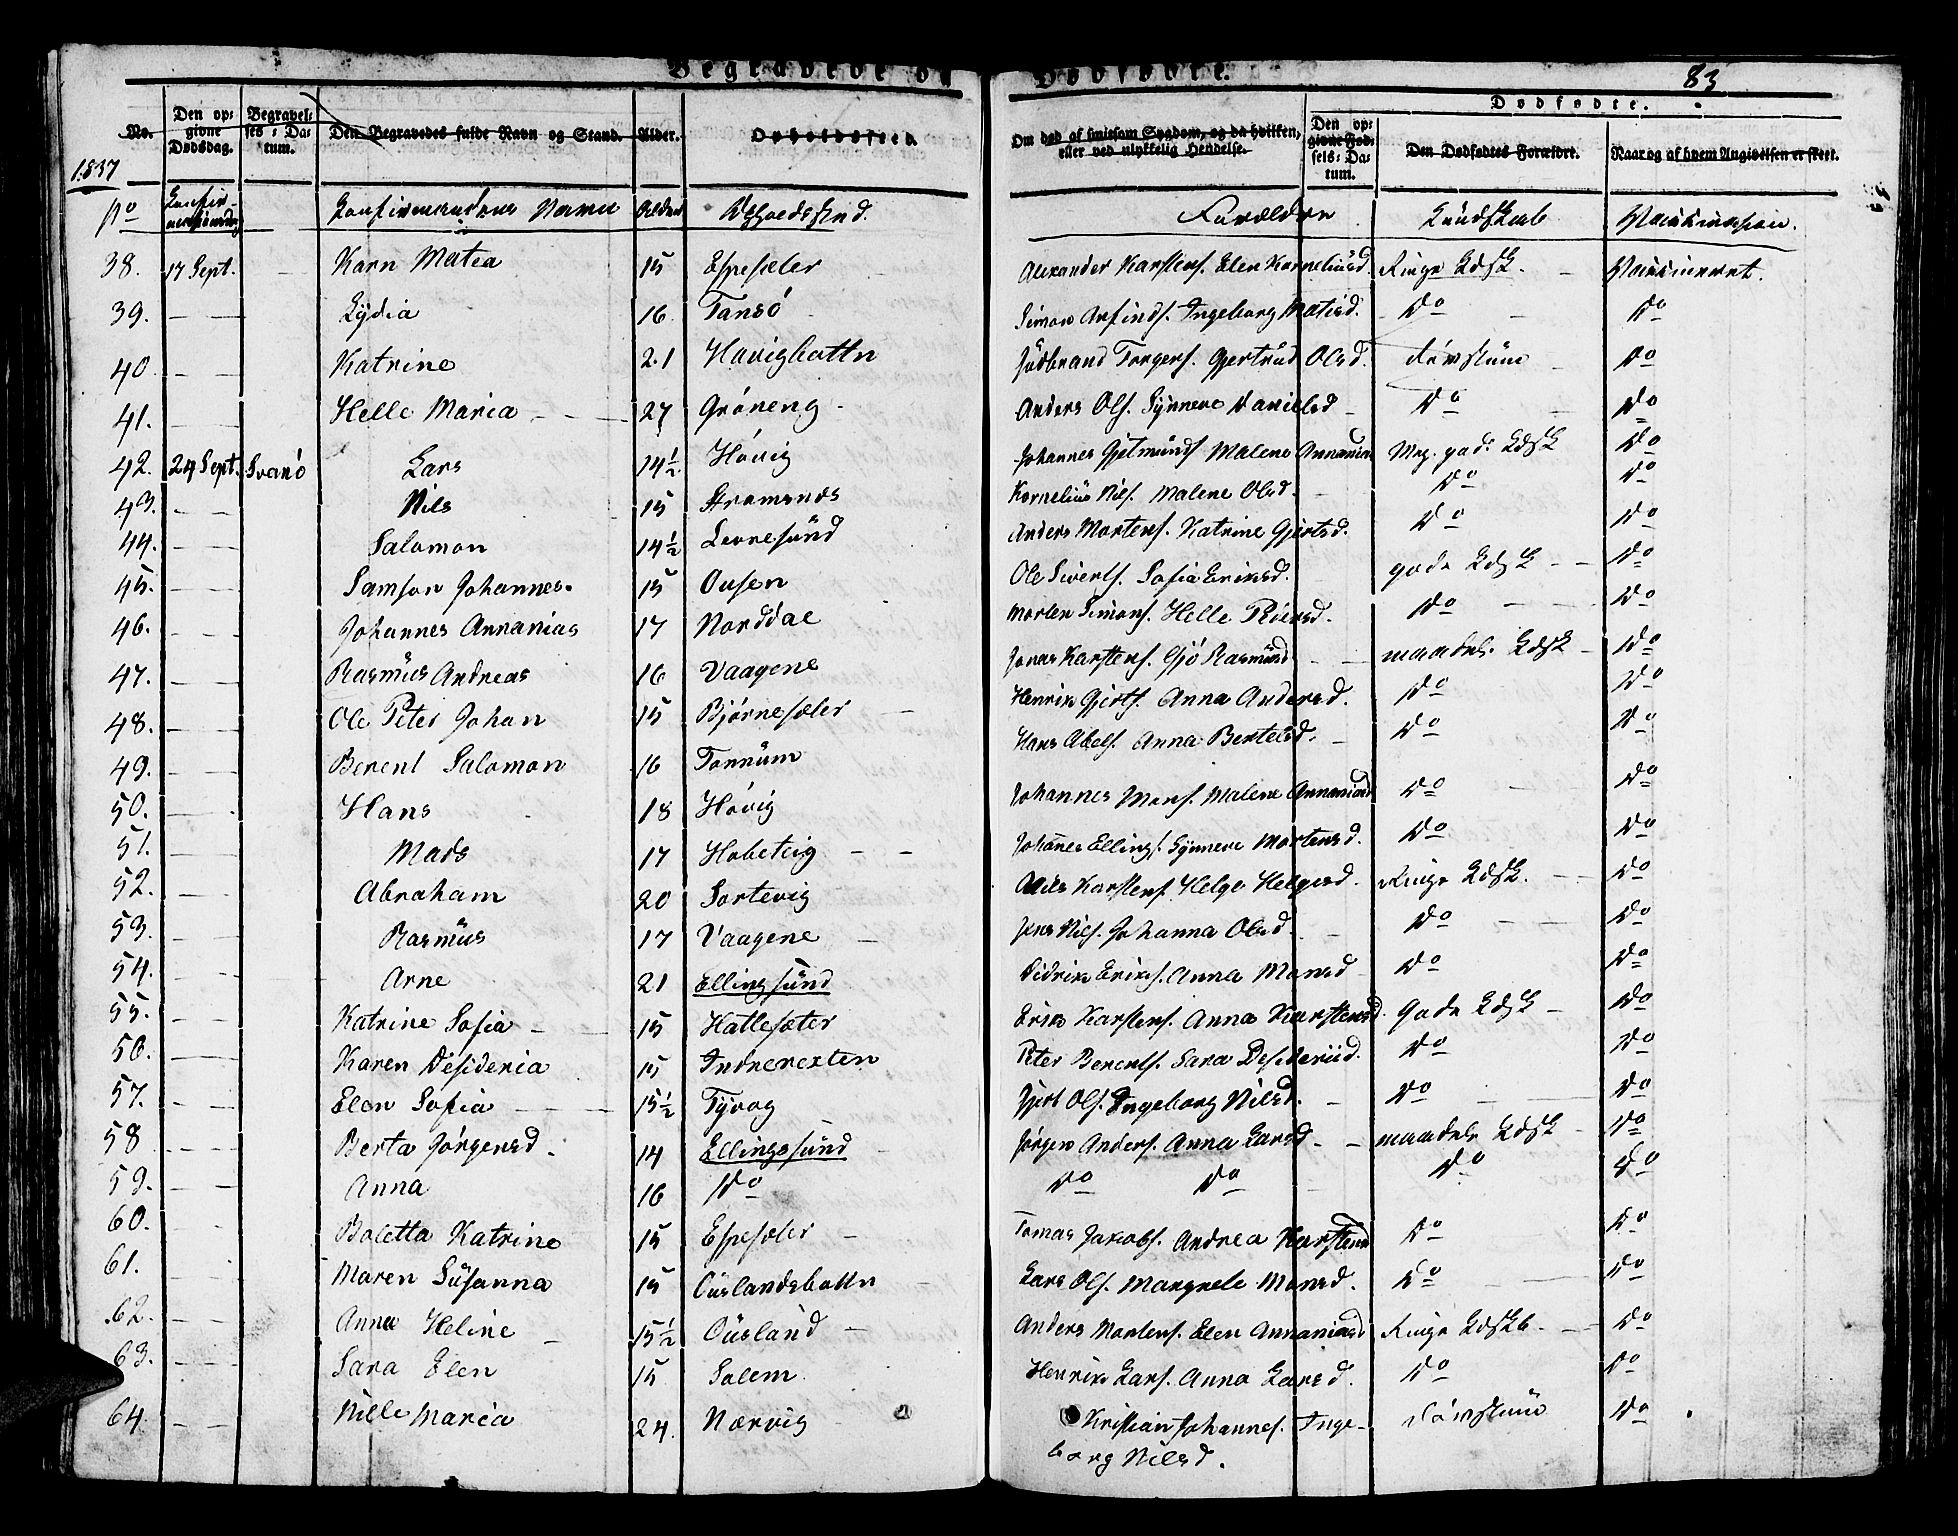 Begravede og Dødfødte.
83
No.
Den opgivne Dødsdag.
Begravelses-Datum.
Den Begravedes fulde Navn og Stand.
Alder.
Opholdssted.
Om død af smitsom Sygdom, og da hvilken, eller ved ulykkelig Hendelse.
Dødfødte.
Den opgivne Fødsels-Datum.
Den Dødfødtes Forældre.
Naar og af hvem Angivelsen er skeet.
1837
No Konfirmandens Navn Alder Opholdsstæd. Forældre Kundskab Vaccination.
38. 17 Sept. Karn Matea 15 Espesæter Alexander Karstens. Elen Korneliusd. Ringe Kdsk. Vaccineret.
39. Lydia 16 Tansö Simon Arfinds. Ingeborg Matisd. Do Do
40. Katrine 21 Havigbottn Gjertrud Olsd. Do
41. Helle Maria 27 Gröneng Anders Ols. Synneve Danielsd Do Do
42. 24 Sept. Svanö Lars 14½ Hövig Johannes Gjetmunds. Malene Annania Mg. gode Kdsk Do
43. Nils 15 Stromsnes Kornelius Nils. Malene Olsd. Do Do
44. Salomon 14½ Levresund Anders Mortens. Katrine Gjertsd. Do Do
45. Samson Johannes. 15 Ousen Ole Siverts. Sofia Eriksd. gode Kdsk Do
46. Johannes Annanias 17 Norddal Morten Simons. Helle Piersd. Do Do
47. Rasmus Andreas 16 Vaagene Jonas Karstens. Gjö Rasmusd maadel. Kdsk Do
48. Ole Peter Johan 15 Björnesæter Henrik Gjerts. Anna Andersd. Do Do
49. Berent Salomon 16 Tonnum Hans Abels. Anna Bertelsd. Do Do
50. Hans 18 Hövig Johannes Mons. Malene Annaniasd Do Do
51. Mads 17 Hobeteig Johannes Ellings. Synneve Mortensd. Do Do
52. Abraham 20 Sortevig Nils Karstens. Helge Helgesd. Ringe Kdsk. Do
53. Rasmus 17 Vaagene Jens Nils. Johanna Olsd. Do Do
54. Arne 21 Ellingsund Didrik Eriks. Anna Monsd Do Do
55. Katrine Sofia 15 Hattesæter Erik Karstens. Anna Karstensd. Gode Kdsk Do
56. Karen Desideria 15 Indrerexten Peter Berents. Sara Desideriid. Do Do
57. Elen Sofia 15½ Tyvog Gjert Ols. Ingeborg Nilsd. Do Do
58 Berta Jörgensd. 14 Ellingssund Jörgen Anders. Anna Larsd maadel. Kdsk Do
59. Anna 16 Do Do Do Do Do
60. Boletta Katrine 15 Espesæter Tomas Jakobs. Andrea Karstensd Do Do
61. Maren Susanna 15 Ouslandsbottn Lars Ols. Margrete Monsd. Do Do
62. Anne Heline 15½ Ousland Anders Mortens. Elen Annaniasd Ringe Kdskb. Do
63. Sara Elen 15 Solem Henrik Lars. Anna Larsd. Do Do
64. Nille Maria 24. Nærvig Kristian Johannes. Inge- Do
borg Nilsd.